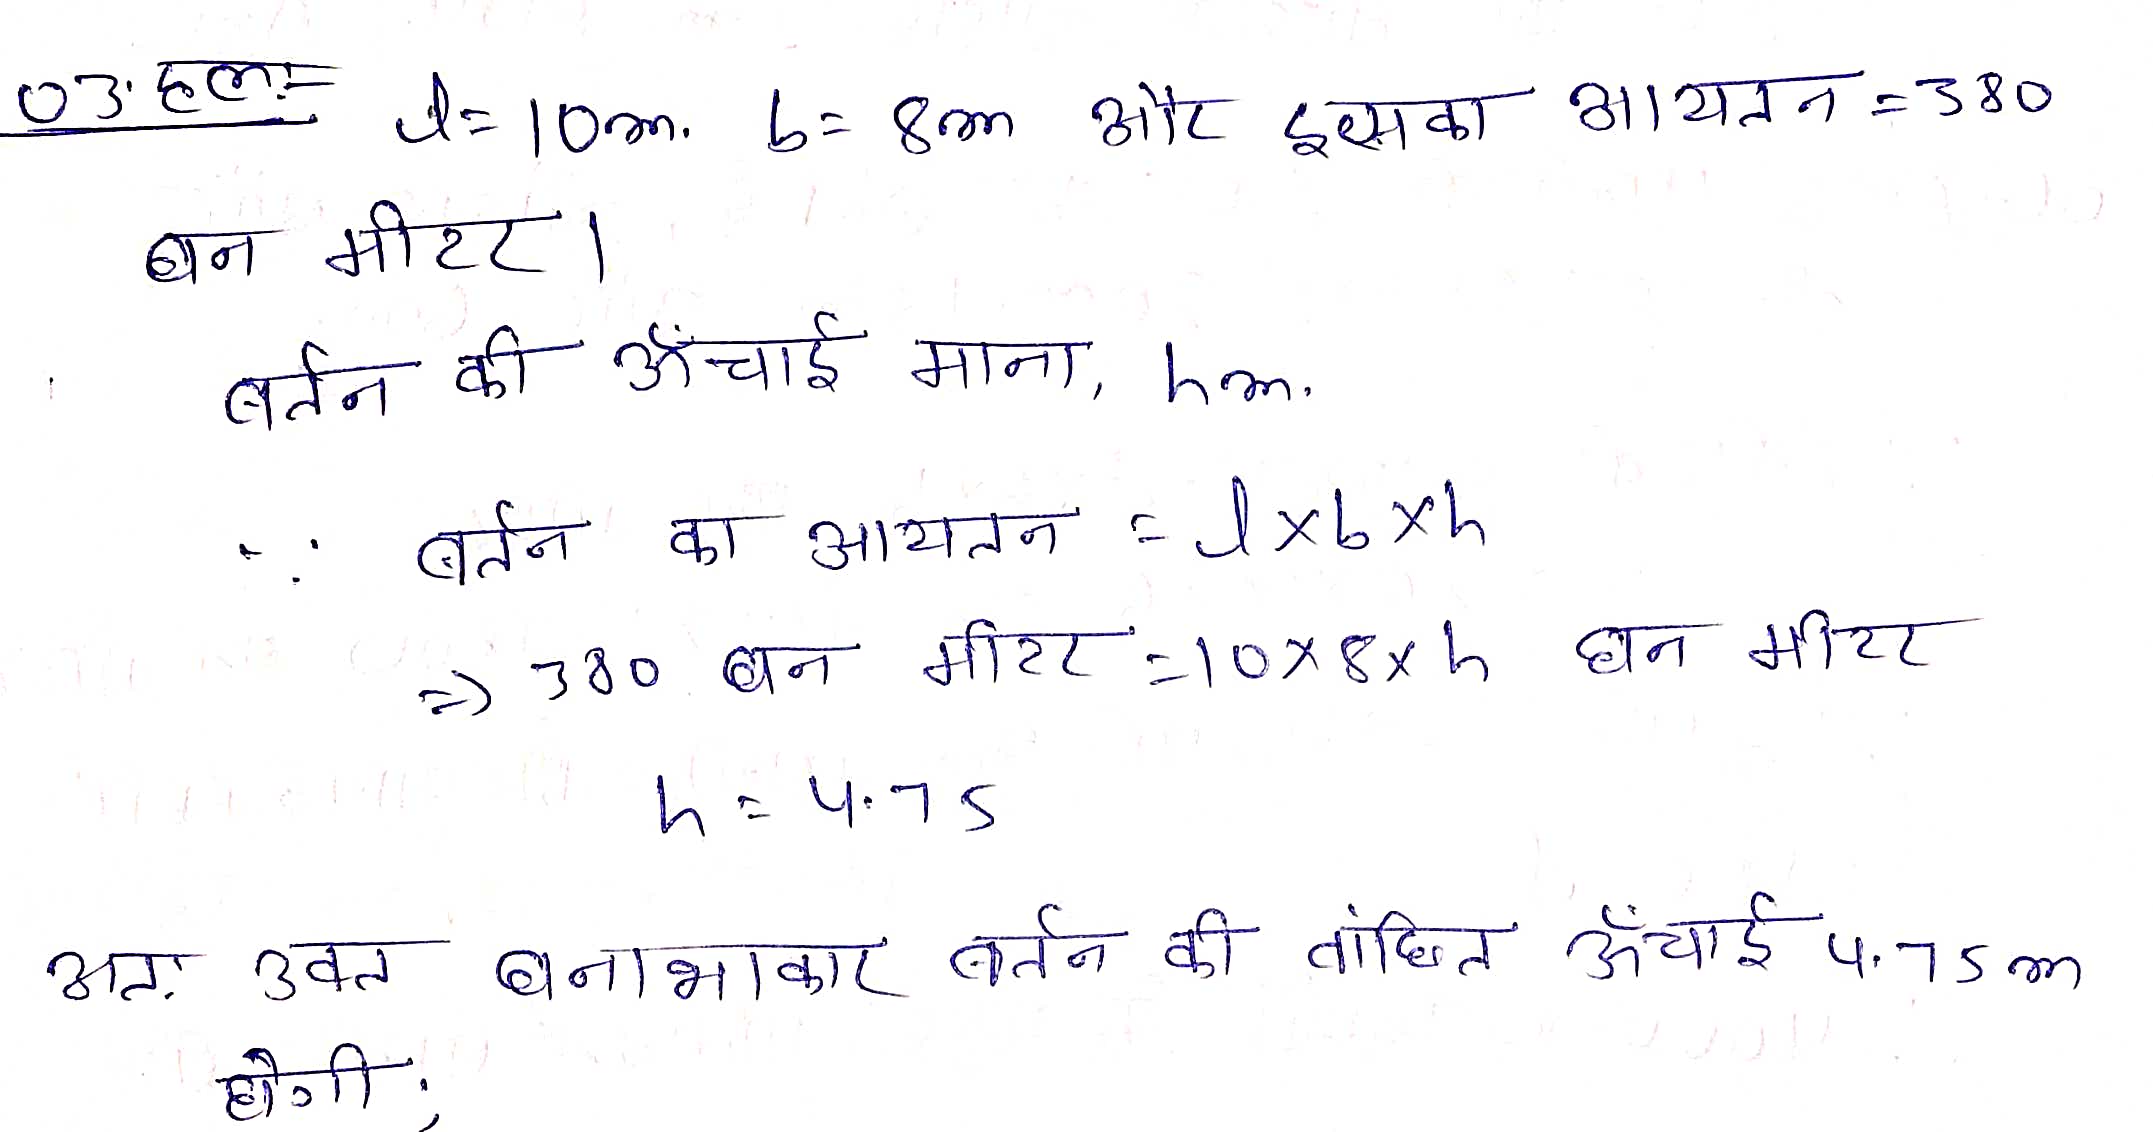 03. हल:- l = 10m. b = 8m और इसका आयतन = 380
घन मीटर।
बर्तन की ऊँचाई माना, h m.
∵ बर्तन का आयतन = l × b × h
=> 380 घन मीटर = 10 × 8 × h घन मीटर
h = 4.75
अतः उक्त घनाभाकार बर्तन की वांछित ऊँचाई 4.75 m
होगी;